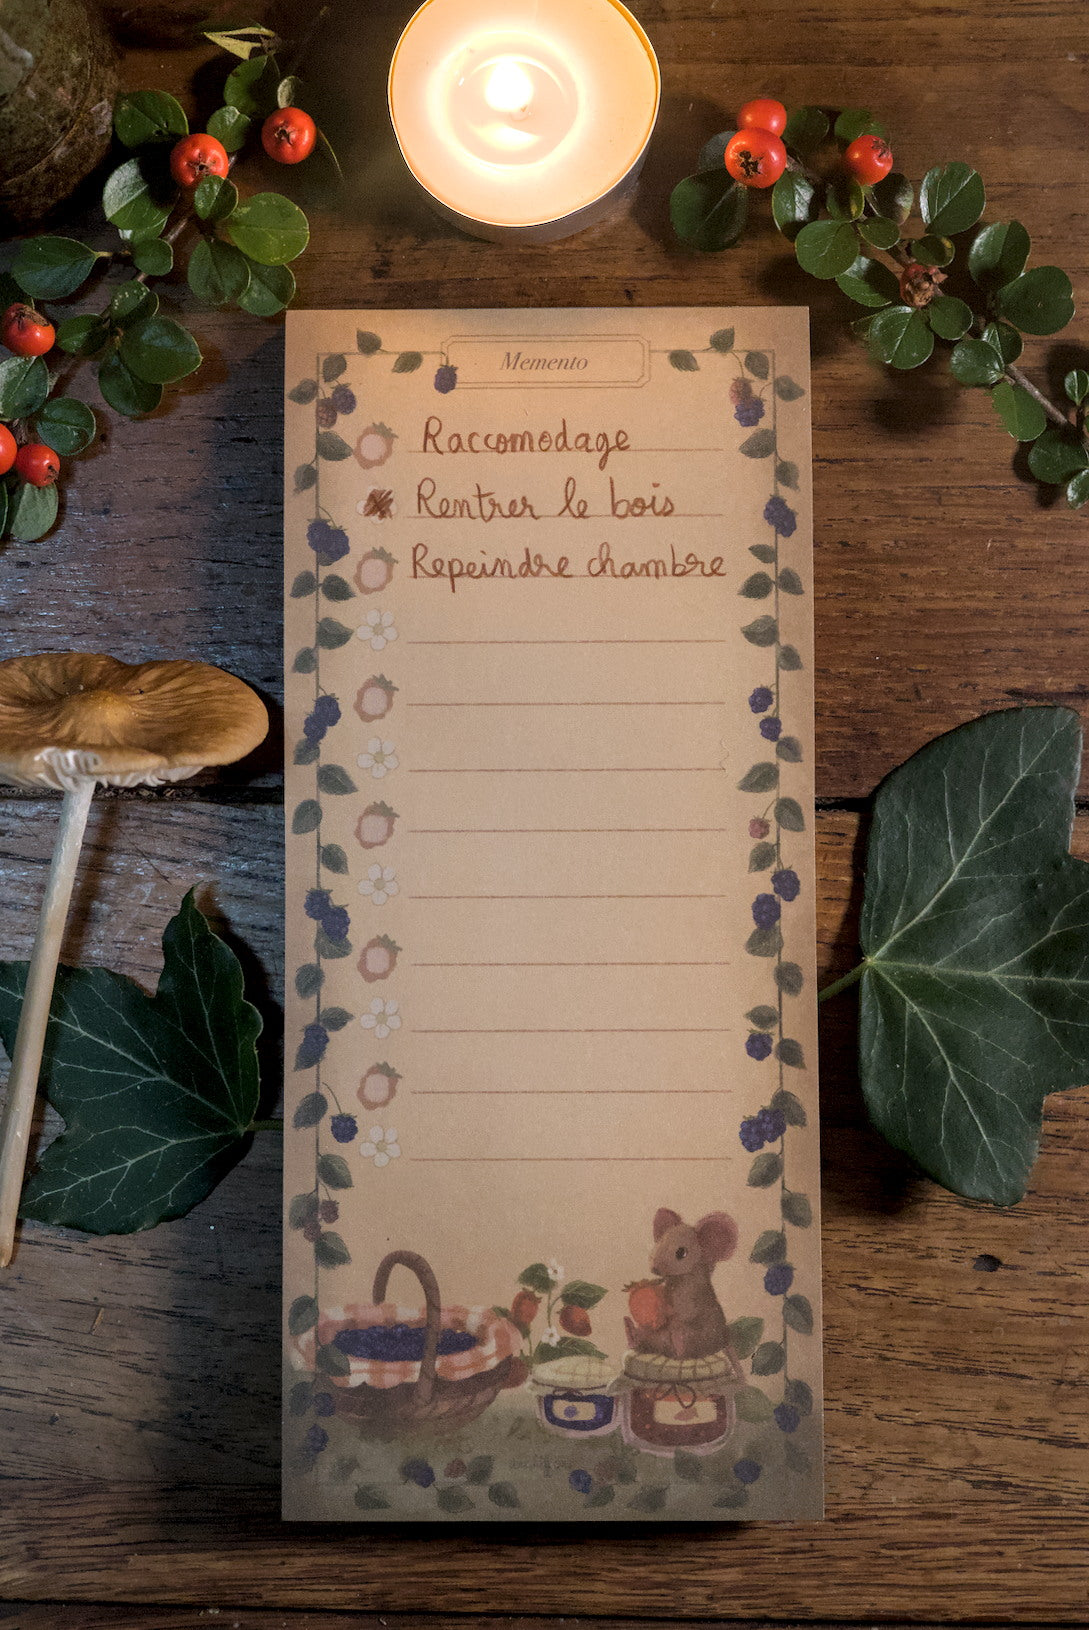 Memento
Raccomodage
Rentrer le bois
Repeindre chambre